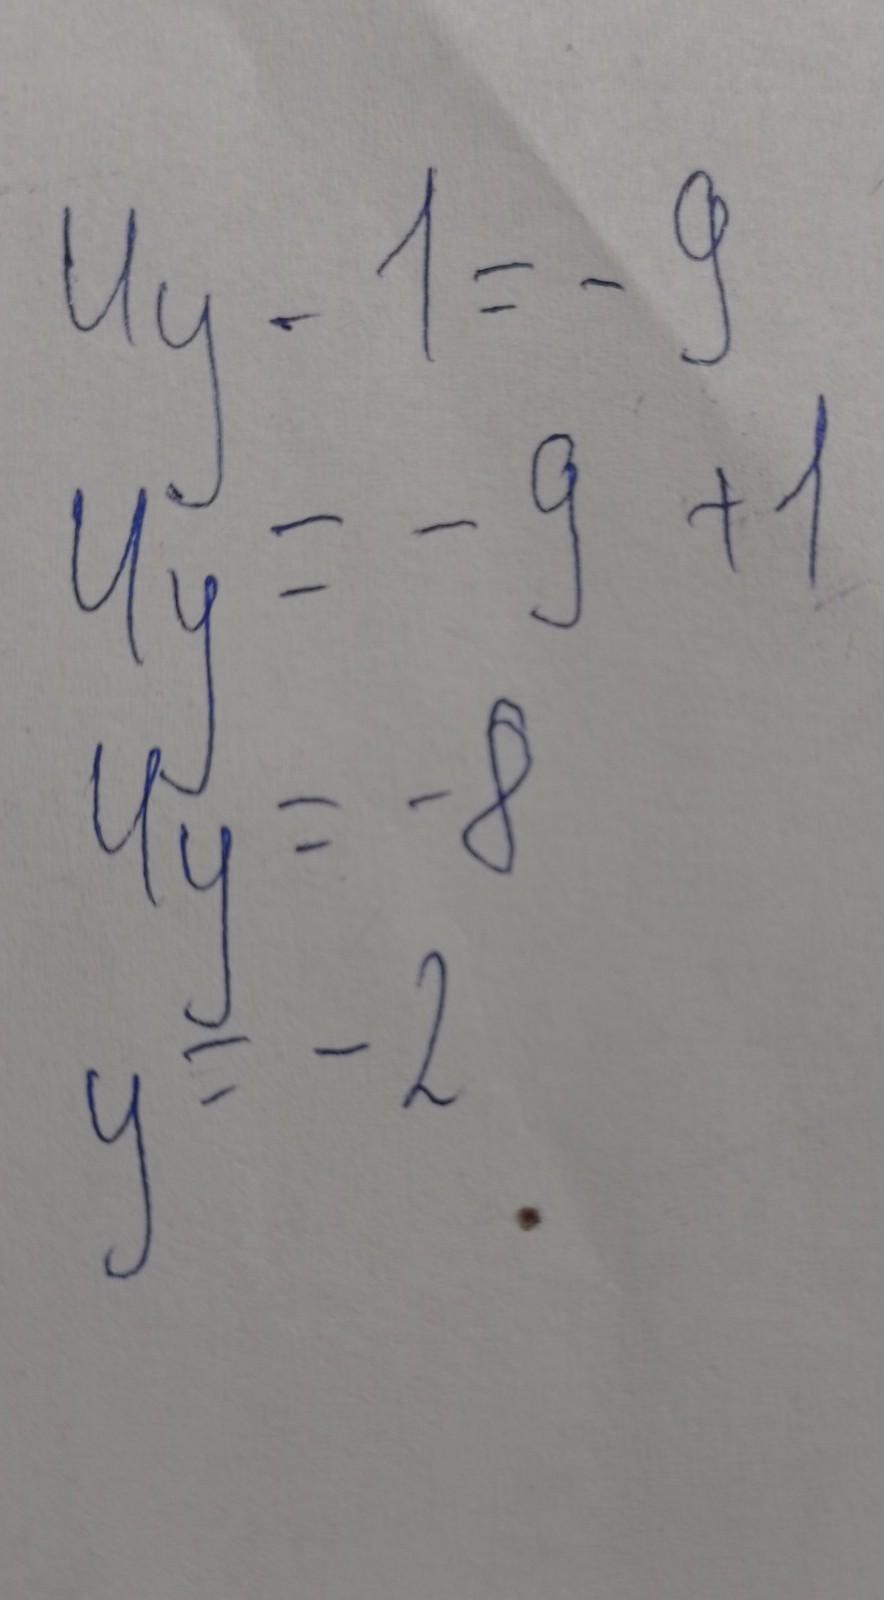 4y - 1 = - 9
4y = - 9 + 1
4y = - 8
y = - 2